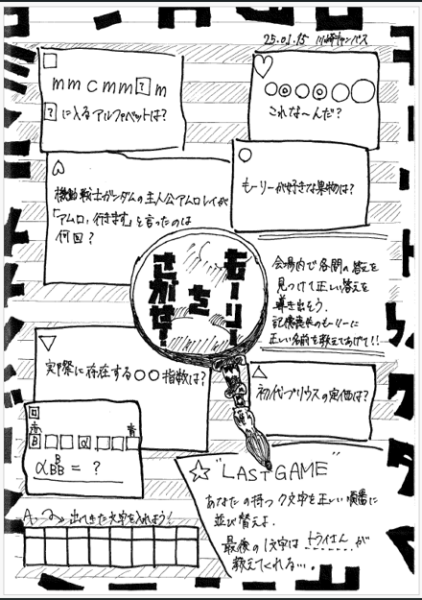 25.01.15 川崎キャンパス
□
mmcmm?m
?に入るアルファベットは?
♡
○◎◎○○○
これな〜んだ?
○
もーりーが好きな果物は?
機動戦士ガンダムの主人公アムロレイが
「アムロ、行きます」と言ったのは
何回?
もーりー
を
さがせ!
会場内で各問の答えを
見つけて正しい答えを
導き出そう。
記憶喪失のもーりーに
正しい名前を教えてあげて!!
▽
実際に存在する○○指数は?
△
初代プリウスの定価は?
回
B□□α□□
αBB = ?
☆"LAST GAME"
あなたの持つ7文字を正しい順番に
並び替えよ。
最後の1文字は トライさん が
教えてくれる…。
出てきた文字を入れよう!